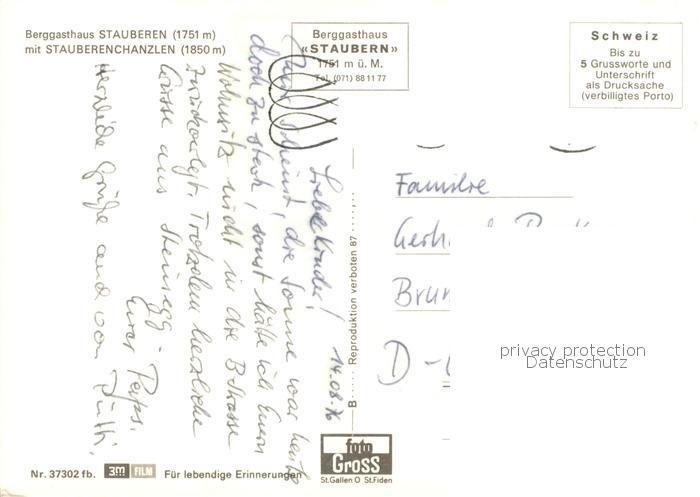 Berggasthaus STAUBEREN (1751 m)
mit STAUBERENCHANZLEN (1850 m)
Berggasthaus
«STAUBERN»
1751 m ü. M.
Tel. (071) 88 11 77
Schweiz
Bis zu
5 Grussworte und
Unterschrift
als Drucksache
(verbilligtes Porto)
14.08.76
Liebe Kinder!
scheint, die Sonne war heute
doch zu stark, sonst hätte ich Euern
Wohnsitz nicht in die B-Strasse
zurückverlegt. Trotzdem herzliche
Grüsse aus Steinegg -
Euer Papi.
Herzliche Grüße auch von Mutti.
Familie
Gerh
Brun
D -
privacy protection
Datenschutz
B Reproduktion verboten 87
Nr. 37302 fb. 3M FILM Für lebendige Erinnerungen
foto
GROSS
St.Gallen O St.Fiden